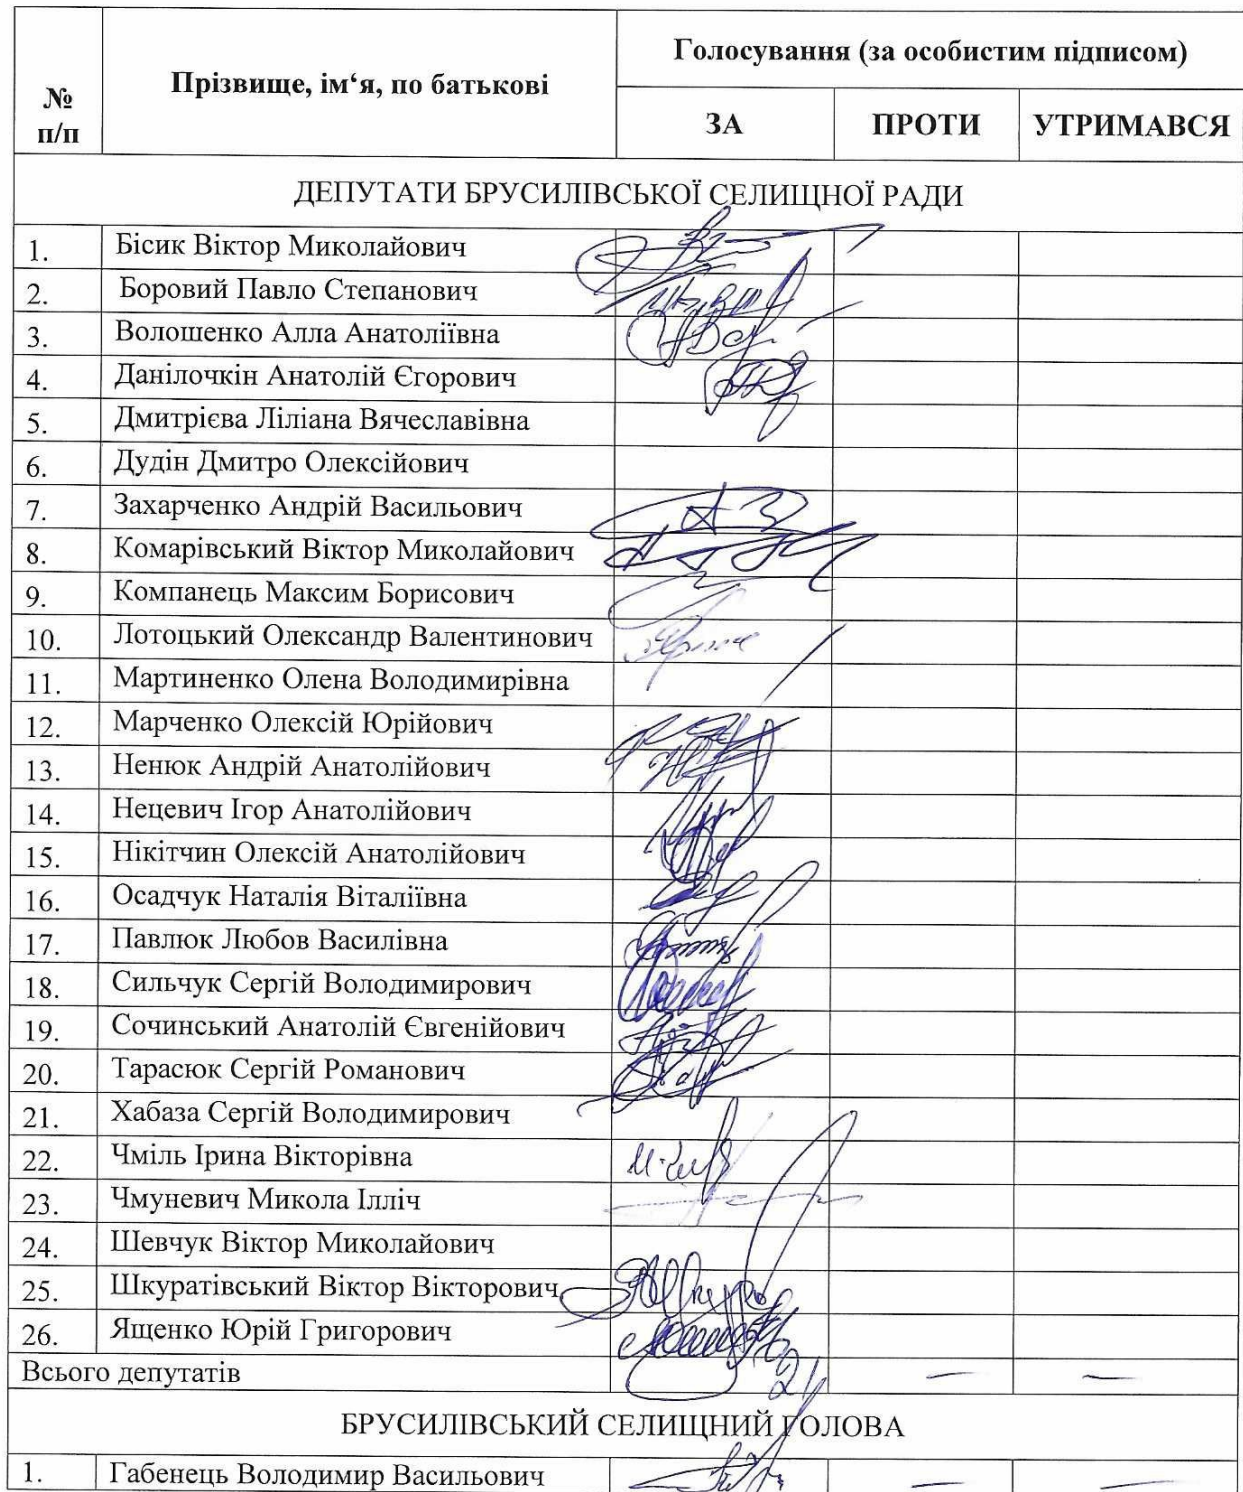 № п/п Прізвище, ім‘я, по батькові Голосування (за особистим підписом)
ЗА ПРОТИ УТРИМАВСЯ
ДЕПУТАТИ БРУСИЛІВСЬКОЇ СЕЛИЩНОЇ РАДИ
1. Бісик Віктор Миколайович
2. Боровий Павло Степанович
3. Волошенко Алла Анатоліївна
4. Данілочкін Анатолій Єгорович
5. Дмитрієва Ліліана Вячеславівна
6. Дудін Дмитро Олексійович
7. Захарченко Андрій Васильович
8. Комарівський Віктор Миколайович
9. Компанець Максим Борисович
10. Лотоцький Олександр Валентинович
11. Мартиненко Олена Володимирівна
12. Марченко Олексій Юрійович
13. Ненюк Андрій Анатолійович
14. Нецевич Ігор Анатолійович
15. Нікітчин Олексій Анатолійович
16. Осадчук Наталія Віталіївна
17. Павлюк Любов Василівна
18. Сильчук Сергій Володимирович
19. Сочинський Анатолій Євгенійович
20. Тарасюк Сергій Романович
21. Хабаза Сергій Володимирович
22. Чміль Ірина Вікторівна
23. Чмуневич Микола Ілліч
24. Шевчук Віктор Миколайович
25. Шкуратівський Віктор Вікторович
26. Ященко Юрій Григорович
Всього депутатів 21 — —
БРУСИЛІВСЬКИЙ СЕЛИЩНИЙ ГОЛОВА
1. Габенець Володимир Васильович — —